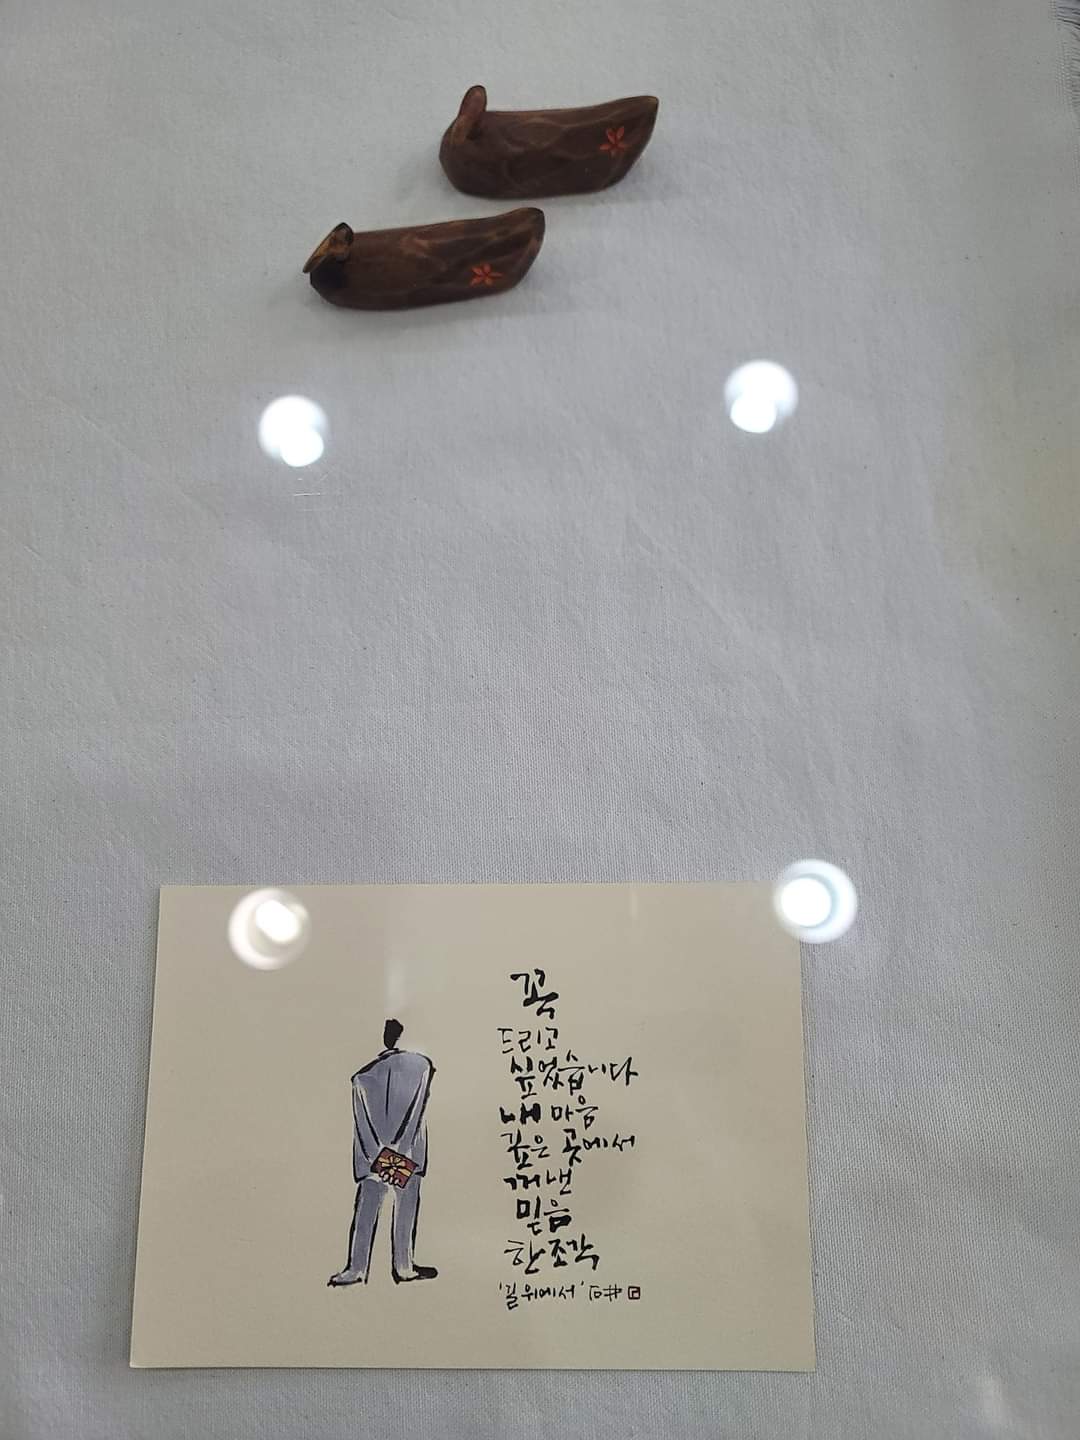 꼭
드리고
싶었습니다
내 마음
깊은 곳에서
꺼낸
믿음
한 조각
'길 위에서'